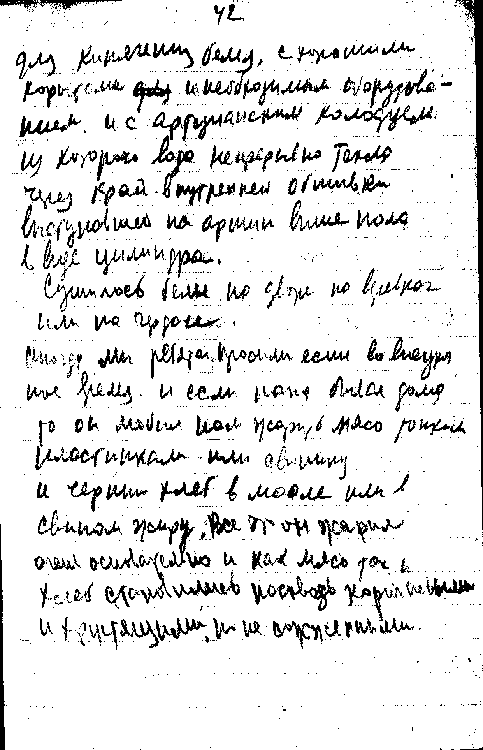 42
для кипячения белья, с хорошими
корытами и необходимым оборудова-
нием и с артезианским колодцем
из которого вода непрерывно текла
через край внутренней обшивки
выступавшей на аршин выше пола
в виде цилиндра.
Сушилось белье на дворе на веревках
или на чердаке.
Иногда мы ребята просили если во внеуроч
ное время и если папа бывал дома
то он любил нам жарить мясо тонкими
пластинками или свинину
и черный хлеб в масле или в
свином жиру. Все это он жарил
очень основательно и как мясо так и
хлеб становились насквозь коричневыми
и хрустящими, но не сожженными.